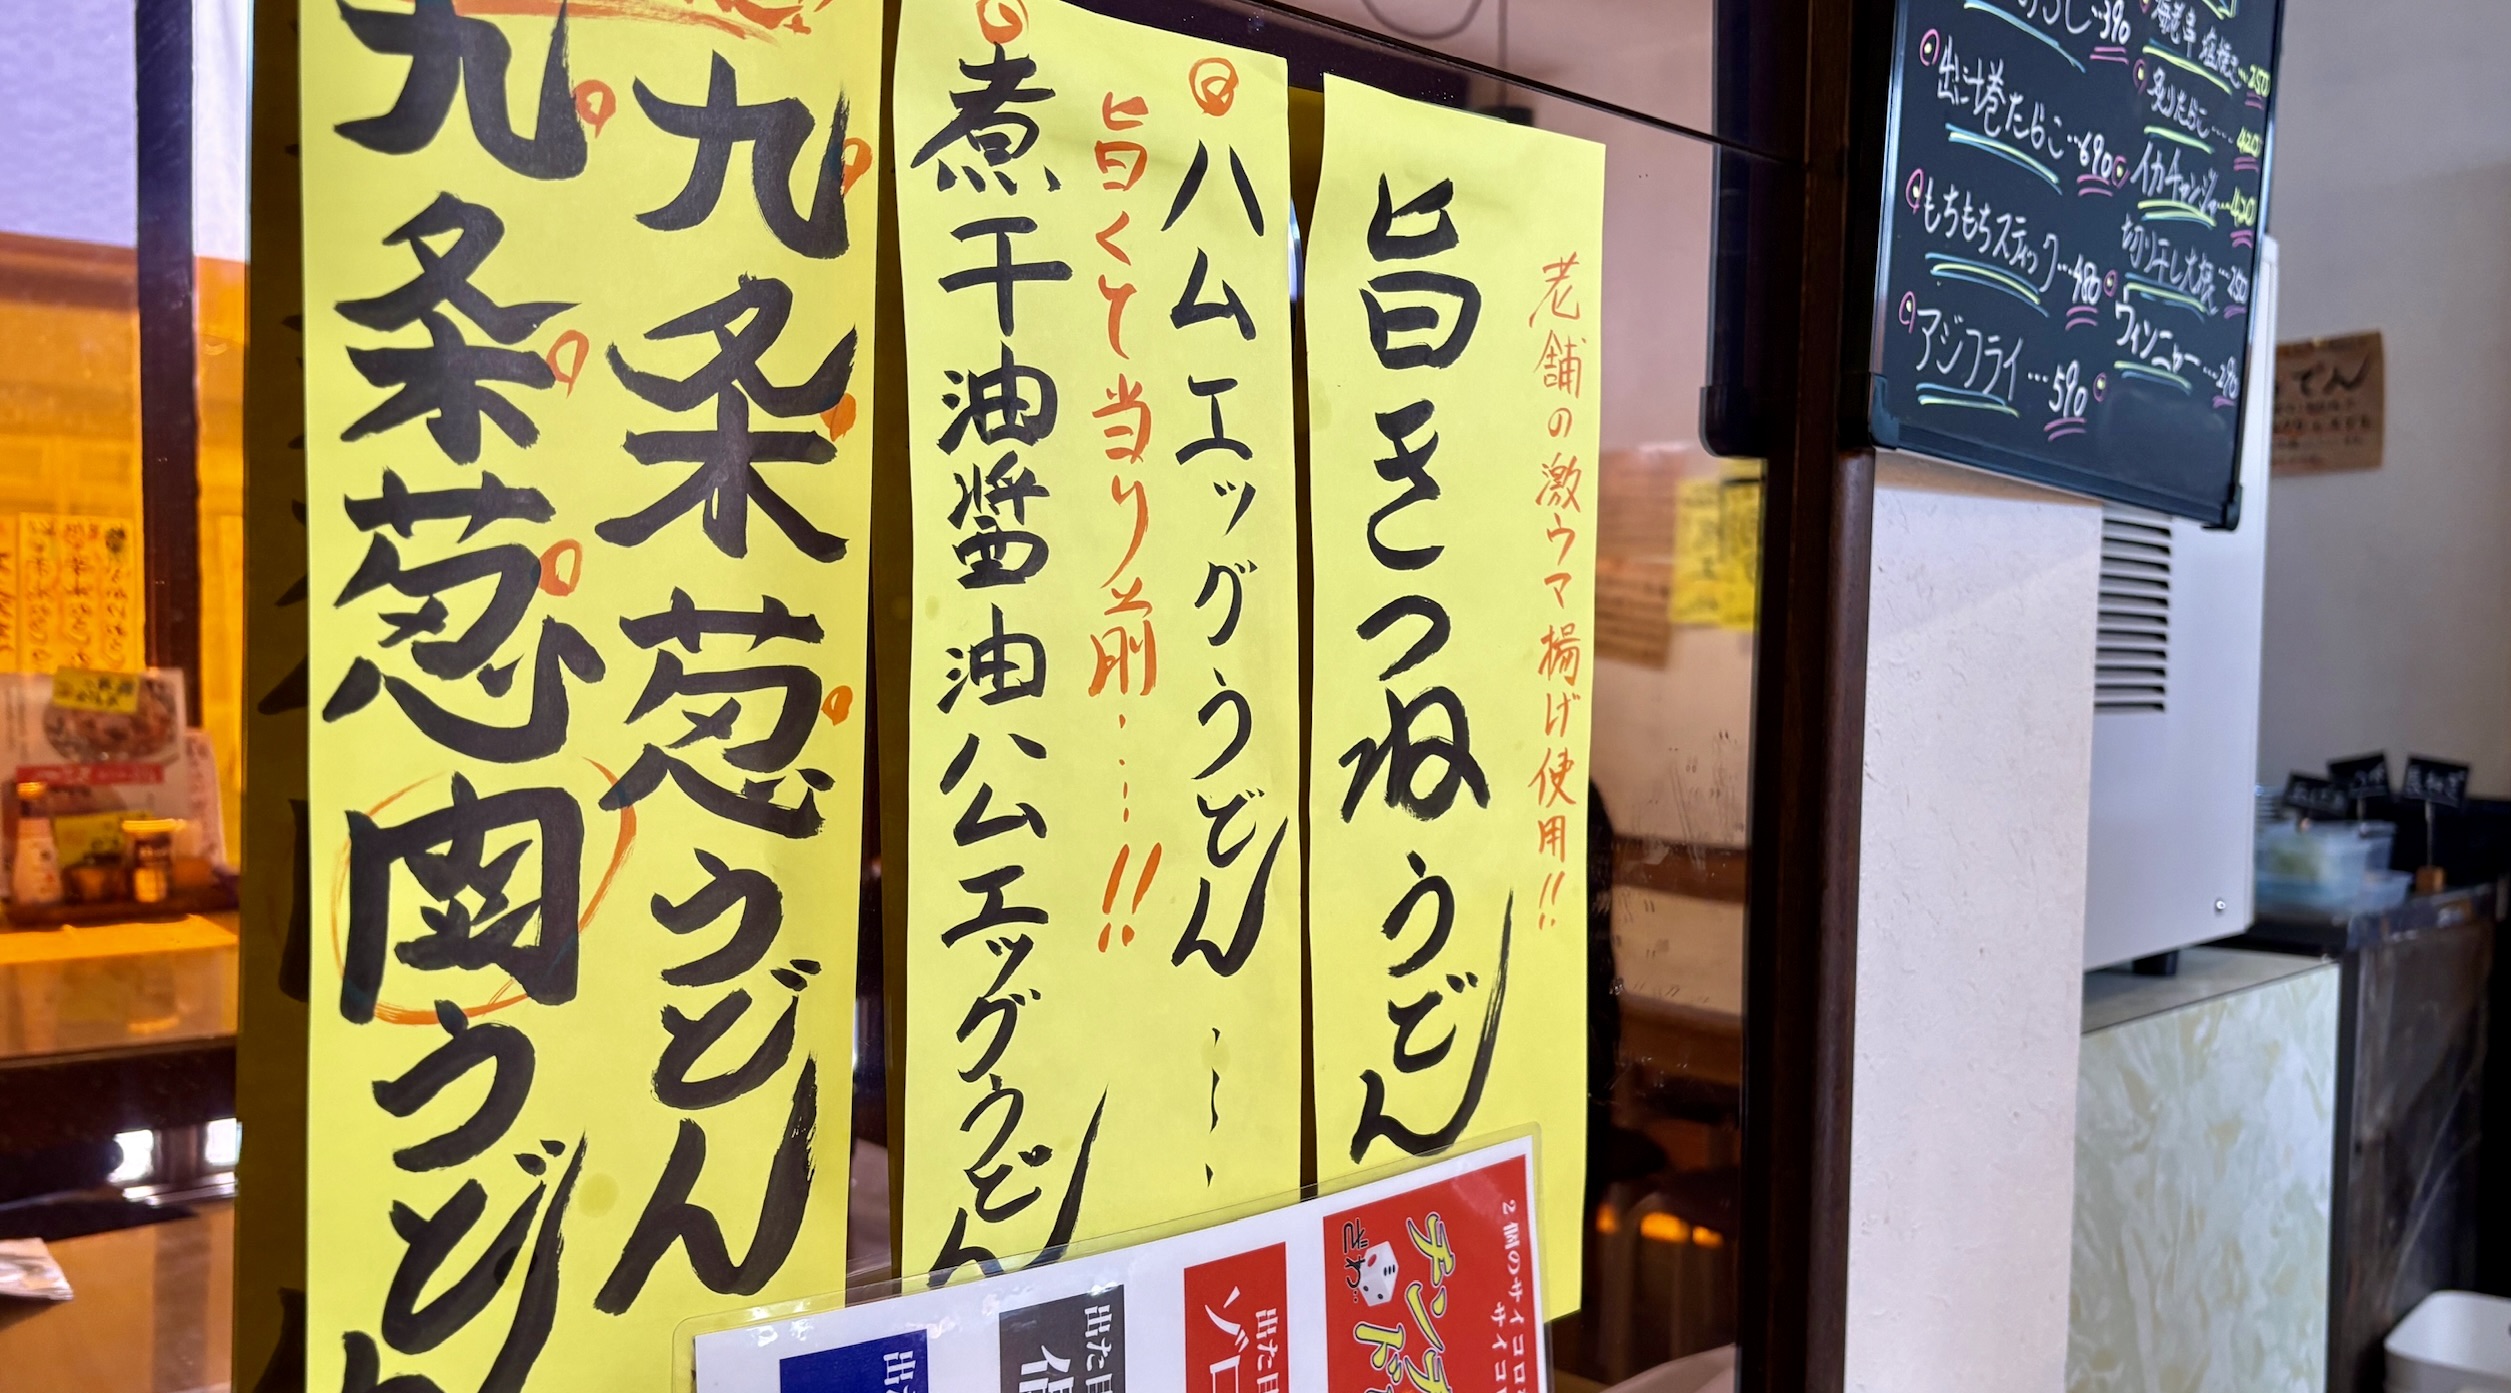 老舗の激ウマ揚げ使用!!
旨きつねうどん
ハムエッグうどん
旨くて当り前……!!
煮干油醤油ハムエッグうどん
九条葱うどん
九条葱肉うどん
海老串塩焼き…250
炙りたらこ…420
イカチャンジャ…420
切り干し大根…250
ウィンナー…290
390
出汁巻たらこ…690
もちもちスティック…480
アジフライ…590
2個のサイコロ
サイコロ
チンチ
ざわ…
出た目
ゾロ
出た目